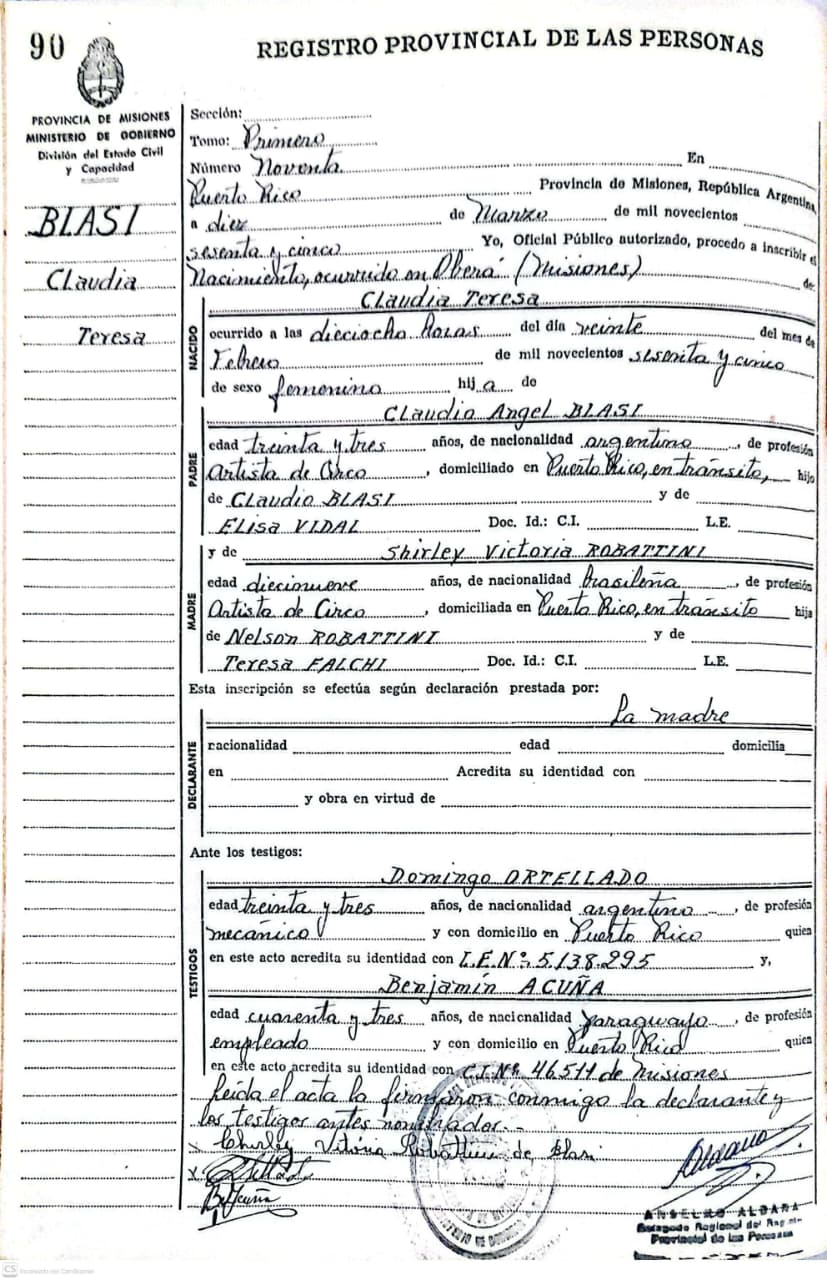 90
REGISTRO PROVINCIAL DE LAS PERSONAS
PROVINCIA DE MISIONES
MINISTERIO DE GOBIERNO
División del Estado Civil
y Capacidad
BLASI
Claudia
Teresa
Sección:
Tomo: Primero
Número Noventa. En
Puerto Rico Provincia de Misiones, República Argentina,
a diez de Marzo de mil novecientos
sesenta y cinco Yo, Oficial Público autorizado, procedo a inscribir el
Nacimiento, ocurrido en Oberá (Misiones) de:
NACIDO
Claudia Teresa
ocurrido a las dieciocho horas del día veinte del mes de
Febrero de mil novecientos sesenta y cinco
de sexo femenino hij a de
PADRE
Claudio Angel BLASI
edad treinta y tres años, de nacionalidad argentino, de profesión
Artista de Circo, domiciliado en Puerto Rico, en tránsito, hijo
de Claudio BLASI y de
Elisa VIDAL Doc. Id.: C.I. L.E.
MADRE
y de Shirley Victoria ROBATTINI
edad diecinueve años, de nacionalidad brasileña, de profesión
Artista de Circo, domiciliada en Puerto Rico, en tránsito hija
de Nelson ROBATTINI y de
Teresa FALCHI Doc. Id.: C.I. L.E.
Esta inscripción se efectúa según declaración prestada por:
La madre
DECLARANTE
nacionalidad edad domicilia
en Acredita su identidad con
y obra en virtud de
Ante los testigos:
TESTIGOS
Domingo ORTELLADO
edad treinta y tres años, de nacionalidad argentino, de profesión
mecánico y con domicilio en Puerto Rico quien
en este acto acredita su identidad con L.E.Nº: 5.138.295 y,
Benjamín ACUÑA
edad cuarenta y tres años, de nacionalidad paraguayo, de profesión
empleado y con domicilio en Puerto Rico quien
en este acto acredita su identidad con C.I.Nº 46.511 de Misiones
Leída el acta la firmaron conmigo la declarante y
los testigos antes nombrados.-
x Chirley Vitória Robattini de Blasi
x
ANSELMO ALDANA
Delegado Regional del Reg.
Provincial de las Personas
CS Escaneado con CamScanner